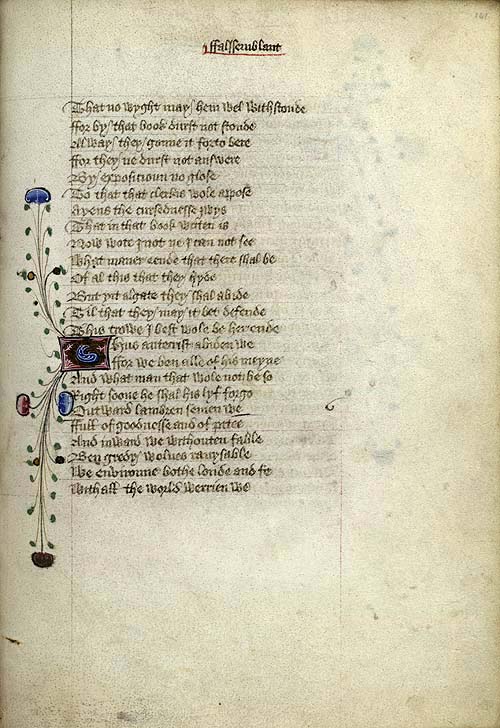 ffalssemblant
141
That no wyght may hem wel withstonde
ffor by that book durst not stonde
Alway they gonne it forto bere
ffor they ne durst not answere
By exposicioun no glose
To that that clerkis wole appose
Ayens the cursednesse Iwys
That in that book writen is
Now wote I not ne I can not see
What maner eende that there shal be
Of al this that they hyde
But yit algate they shal abide
Til that they may it bet defende
This trowe I best wole be her ende
Thus antecrist abiden we
ffor we ben alle of his meyne
And what man that wole not be so
Right soone he shal his lyf forgo
Outward lambren semen we
ffull of goodnesse and of pitee
And inward we withouten fable
Ben gredy wolues rauysable
We enviroune bothe londe and se
With all the world werrien we